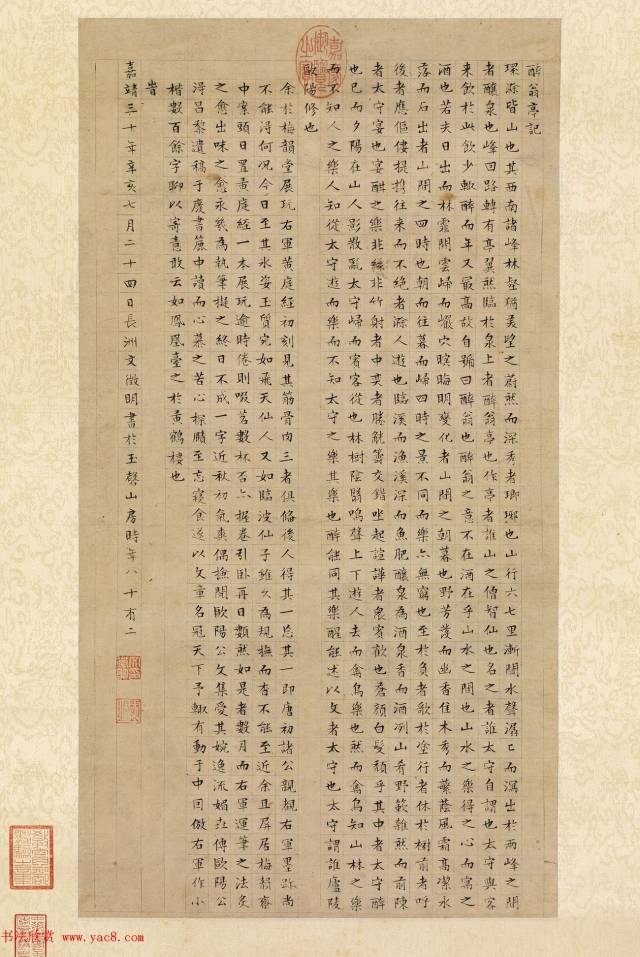 醉翁亭記
環滁皆山也其西南諸峰林壑猶美望之蔚然而深秀者瑯琊也山行六七里漸聞水聲潺〻而瀉出於兩峰之間
者釀泉也峰回路轉有亭翼然臨於泉上者醉翁亭也作亭者誰山之僧智仙也名之者誰太守自謂也太守與客
來飲於此飲少輒醉而年又最高故自號曰醉翁也醉翁之意不在酒在乎山水之間也山水之樂得之心而寓之
酒也若夫日出而林霏開雲歸而巖穴暝晦明變化者山間之朝暮也野芳發而幽香佳木秀而繁蔭風霜高潔水
落而石出者山間之四時也朝而往暮而歸四時之景不同而樂亦無窮也至於負者歌於塗行者休於樹前者呼
後者應傴僂提攜往來而不絕者滁人遊也臨溪而漁溪深而魚肥釀泉為酒泉香而酒冽山肴野蔌雜然而前陳
者太守宴也宴酣之樂非絲非竹射者中奕者勝觥籌交錯坐起諠譁者衆賓歡也蒼顏白髮頹乎其中者太守醉
也已而夕陽在山人影散亂太守歸而賓客從也林樹陰翳鳴聲上下遊人去而禽鳥樂也然而禽鳥知山林之樂
而不知人之樂人知從太守遊而樂而不知太守之樂其樂也醉能同其樂醒能述以文者太守也太守謂誰廬陵
歐陽修也
余於梅韻堂展玩右軍黃庭經初刻見其筋骨肉三者俱備後人得其一忘其一即唐初諸公親覩右軍墨跡尚
不能得何況今日至其氷姿玉質宛如飛天仙人又如臨波仙子雖久為規撫而杳不能至近余且屏居梅韻齋
中案頭日置黃庭經一本展玩逾時倦則啜茗數杯否亦握卷引卧再日數然如是者數月而右軍運筆之法炙
之愈出味之愈永茲為執筆擬之終日不成一字近秋初氣爽偶撿閱歐陽公文集愛其婉逸流媚世傳歐陽公
得昌黎遺稿于廢書簏中讀而心慕之苦心探賾至忘寢食遂以文章名冠天下予輒有動于中因倣右軍作小
楷數百餘字聊以寄意敢云如鳳凰臺之於黃鶴樓也
旹
嘉靖三十年辛亥七月二十四日長洲文徵明書於玉磬山房時年八十有二
书法欣赏 www.yac8.com